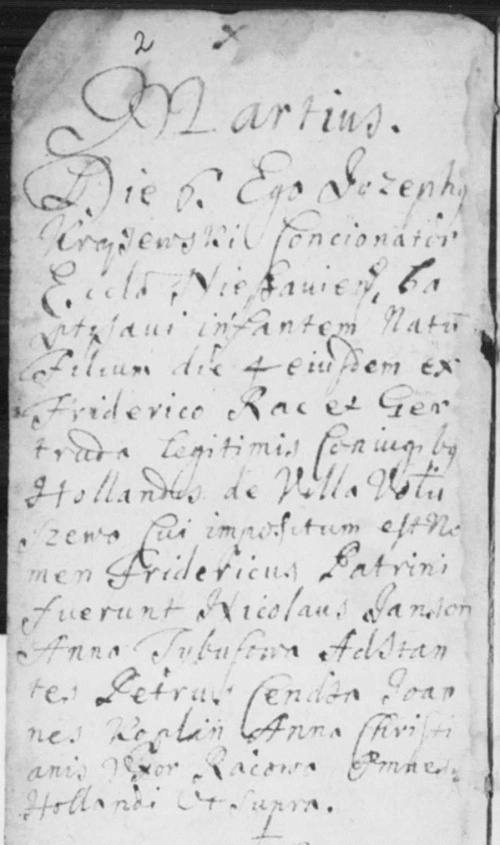 2 x
Martius.
Die 6. Ego Jozephg
Krajewski Concionator
Eccla Nieszavien, ba
ptisavi infantem Natū
Filium die 4 eiusdem ex
Friderico Rac et Ger
truda legitimis Coniugibg
Hollandis de Villa Volu
szewo Cui impositum est No
men Fridericus Patrini
fuerunt Nicolaus Janson
Anna Tybusowa Adstan
tes Petrus Cendra Joan
nes Koplin Anna Christi
anis Uxor Racowa Omnes
Hollandi Ut supra.